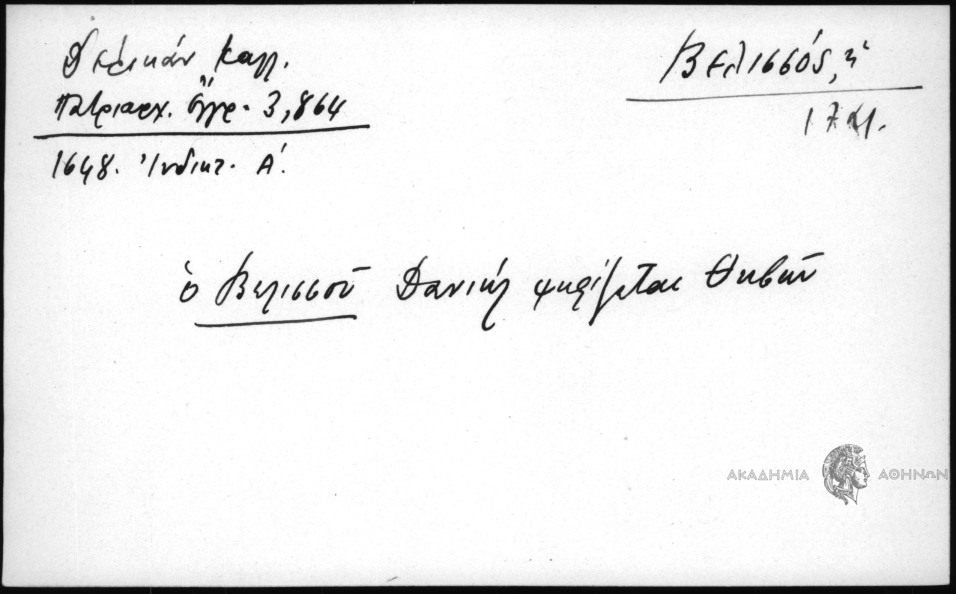 Δελικάν Καλλ.
Πατριαρχ. ἔγγρ. 3,864
1648. Ἰνδικτ. Α΄.
Βελισσός, ἡ
ὁ Βελισσοῦ Δανιήλ ψηφίζεται Θηβῶν
ΑΚΑΔΗΜΙΑ ΑΘΗΝΩΝ